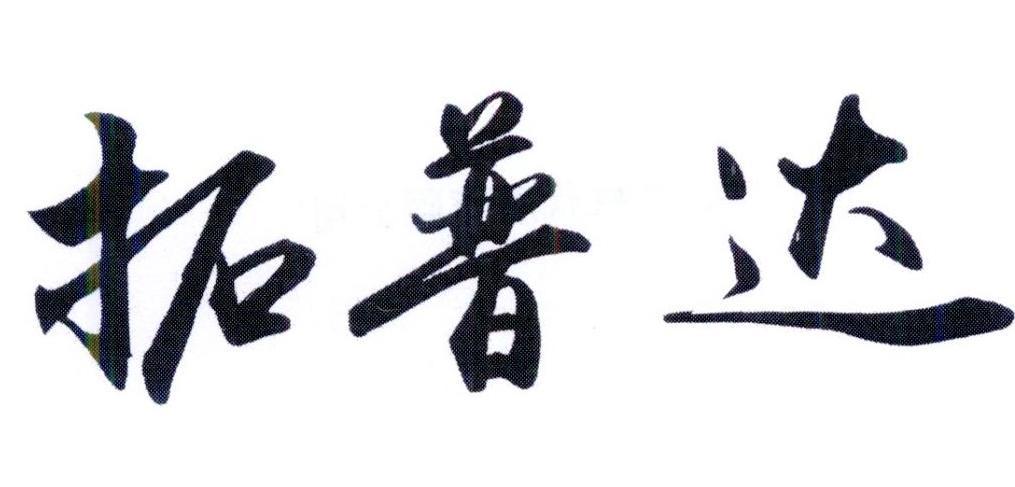 拓普达